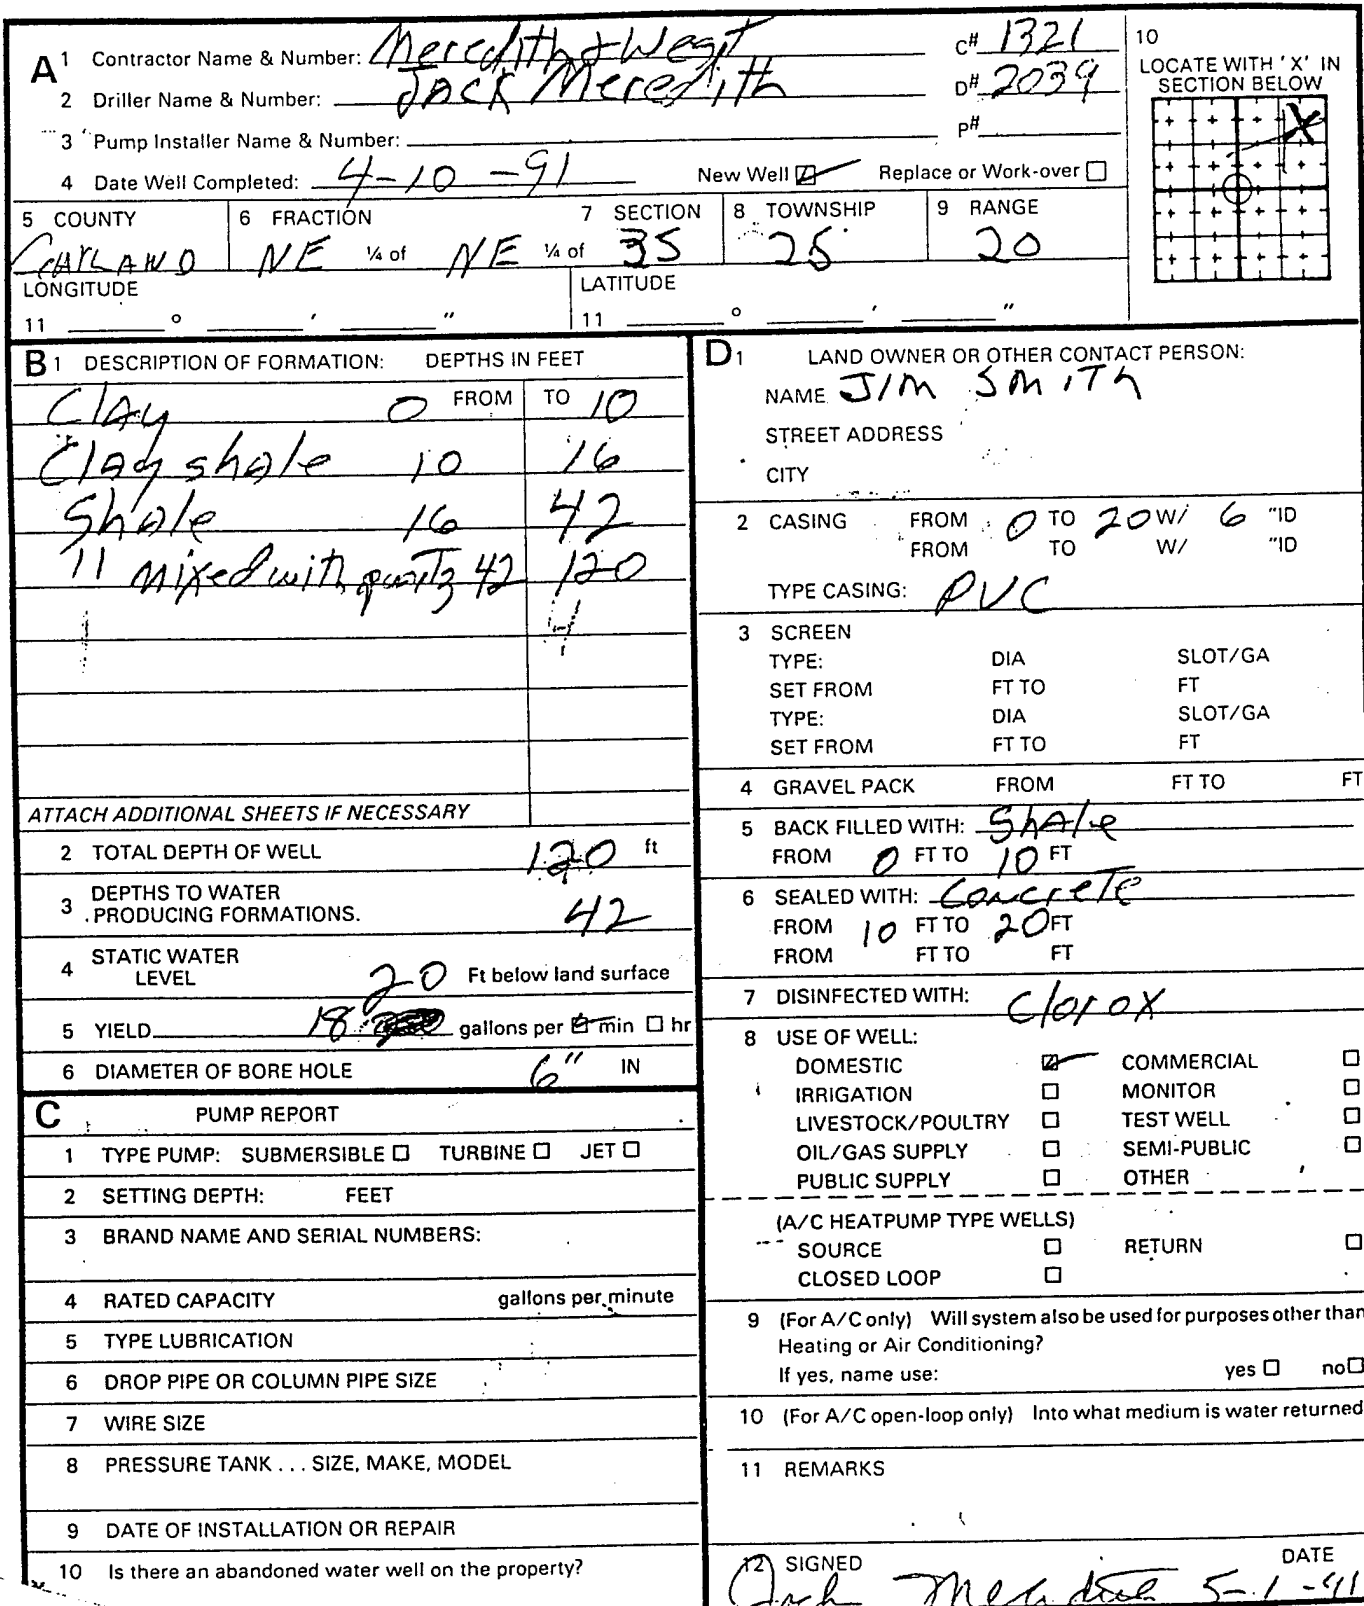 A 1 Contractor Name & Number: Meredith & West C# 1321
2 Driller Name & Number: Jack Meredith D# 2039
3 Pump Installer Name & Number: P#
4 Date Well Completed: 4-10-91 New Well ☑ Replace or Work-over ☐
10
LOCATE WITH 'X' IN
SECTION BELOW
X
5 COUNTY 6 FRACTION 7 SECTION 8 TOWNSHIP 9 RANGE
GARLAND NE ¼ of NE ¼ of 35 2S 20
LONGITUDE LATITUDE
11 ° ' " 11 ° ' "
B 1 DESCRIPTION OF FORMATION: DEPTHS IN FEET
FROM TO
Clay 0 10
Clay shale 10 16
Shale 16 42
11 mixed with quartz 42 120
ATTACH ADDITIONAL SHEETS IF NECESSARY
2 TOTAL DEPTH OF WELL 120 ft
3 DEPTHS TO WATER
PRODUCING FORMATIONS. 42
4 STATIC WATER
LEVEL 20 Ft below land surface
5 YIELD 18 gallons per ☑ min ☐ hr
6 DIAMETER OF BORE HOLE 6" IN
C PUMP REPORT
1 TYPE PUMP: SUBMERSIBLE ☐ TURBINE ☐ JET ☐
2 SETTING DEPTH: FEET
3 BRAND NAME AND SERIAL NUMBERS:
4 RATED CAPACITY gallons per minute
5 TYPE LUBRICATION
6 DROP PIPE OR COLUMN PIPE SIZE
7 WIRE SIZE
8 PRESSURE TANK . . . SIZE, MAKE, MODEL
9 DATE OF INSTALLATION OR REPAIR
10 Is there an abandoned water well on the property?
D 1 LAND OWNER OR OTHER CONTACT PERSON:
NAME JIM SMITH
STREET ADDRESS
CITY
2 CASING FROM 0 TO 20 W/ 6 "ID
FROM TO W/ "ID
TYPE CASING: PVC
3 SCREEN
TYPE: DIA SLOT/GA
SET FROM FT TO FT
TYPE: DIA SLOT/GA
SET FROM FT TO FT
4 GRAVEL PACK FROM FT TO FT
5 BACK FILLED WITH: Shale
FROM 0 FT TO 10 FT
6 SEALED WITH: Concrete
FROM 10 FT TO 20 FT
FROM FT TO FT
7 DISINFECTED WITH: Clorox
8 USE OF WELL:
DOMESTIC ☑ COMMERCIAL ☐
IRRIGATION ☐ MONITOR ☐
LIVESTOCK/POULTRY ☐ TEST WELL ☐
OIL/GAS SUPPLY ☐ SEMI-PUBLIC ☐
PUBLIC SUPPLY ☐ OTHER
(A/C HEATPUMP TYPE WELLS)
SOURCE ☐ RETURN ☐
CLOSED LOOP ☐
9 (For A/C only) Will system also be used for purposes other than
Heating or Air Conditioning?
If yes, name use: yes ☐ no ☐
10 (For A/C open-loop only) Into what medium is water returned
11 REMARKS
12 SIGNED DATE
Jack Meredith 5-1-91